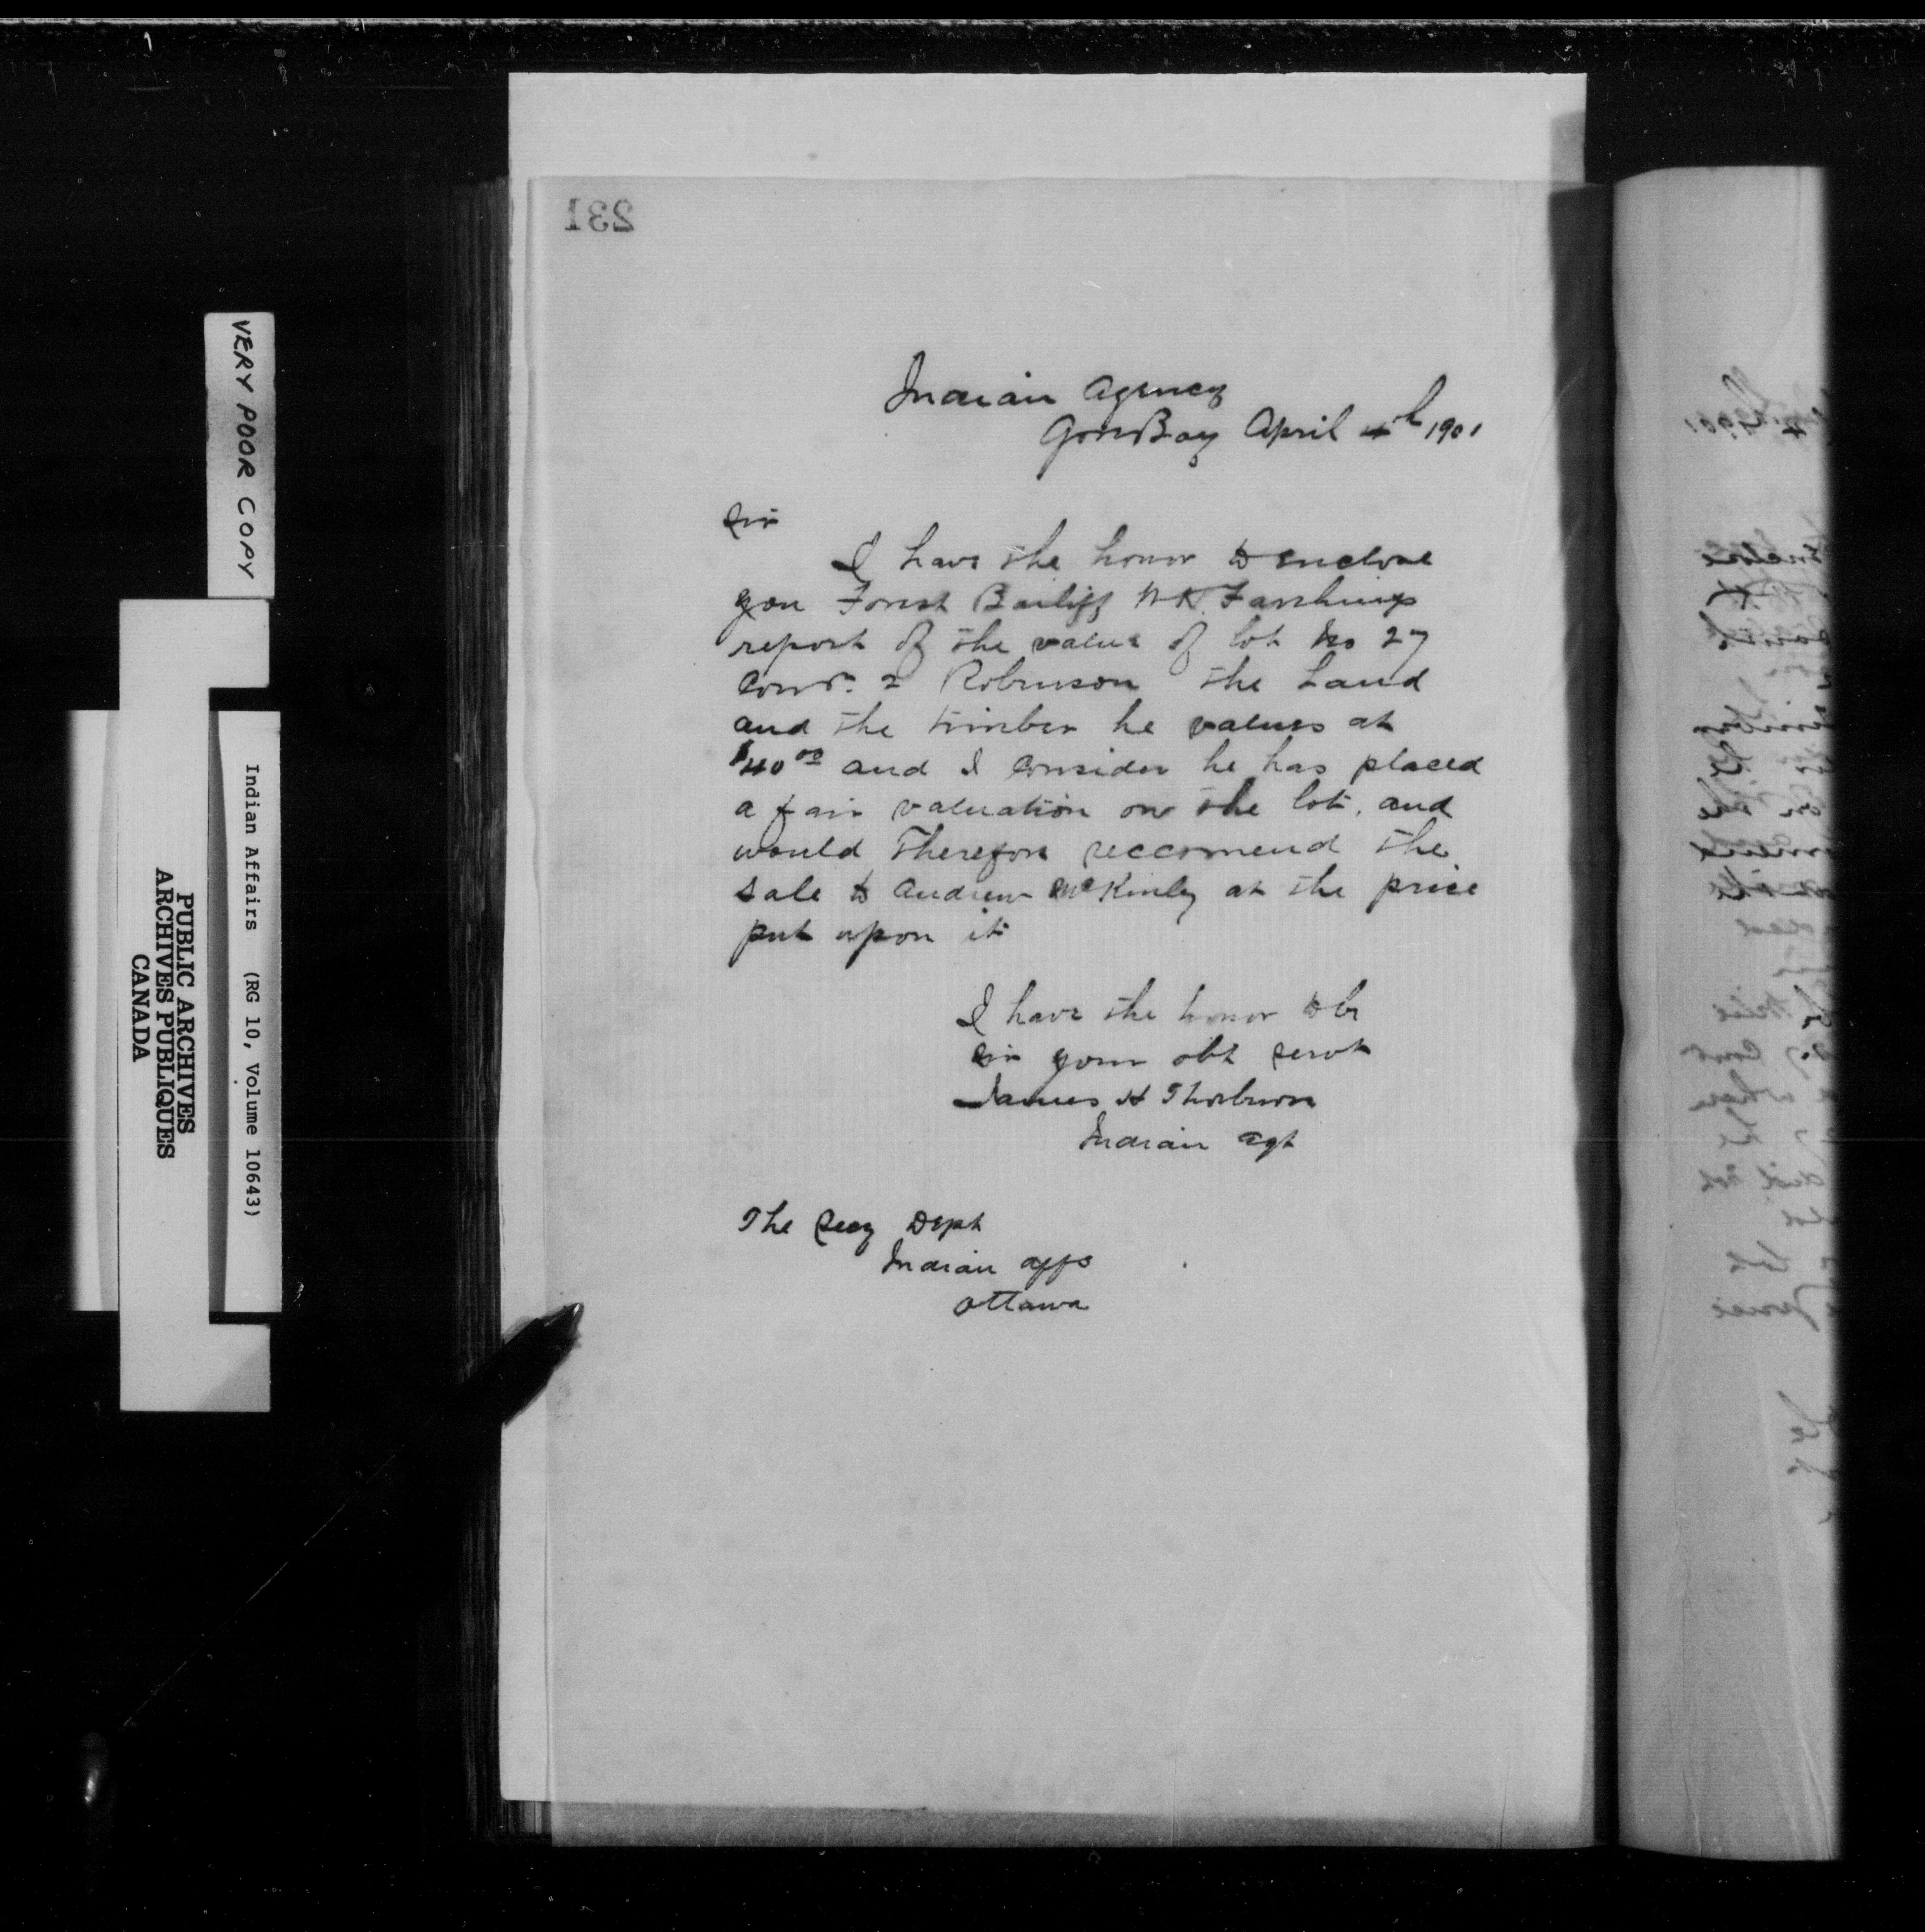 231
Indian Agency
Gore Bay April 4th 1901
Sir
I have the honor to enclose
you Forest Bailiff
report of the value of lot No 27
Con 2 Robinson the Land
and the timber he values at
$40.00 and I consider he has placed
a fair valuation on the lot, and
would Therefore reccomend the
sale to Andrew McKinley at the price
put upon it
I have the honor to be
Sir your obt servt
James H Thorburn
Indian Agt
The Secy Dept
Indian Affs
Ottawa
VERY POOR COPY
Indian Affairs (RG 10, Volume 10643)
PUBLIC ARCHIVES
ARCHIVES PUBLIQUES
CANADA